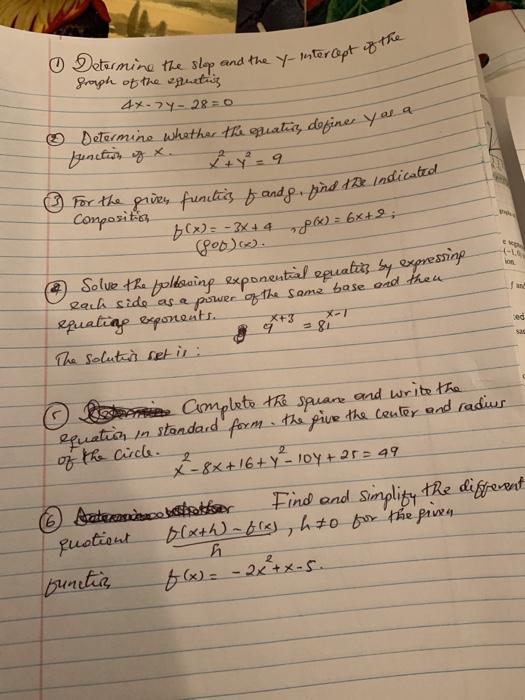 ① Determine the slop and the y-intercept of the
graph of the equation
4x-7y-28=0
② Determine whether the equation defines y as a
function of x.
x²+y²=9
③ For the given function f and g, find the indicated
composition
f(x)=-3x+4, g(x)=6x+2;
(gof)(x).
④ Solve the following exponential equation by expressing
each side as a power of the same base and then
equating exponents.
9^(x+3) = 81^(x-1)
The solution set is:
⑤ Complete the square and write the
equation in standard form. the give the center and radius
of the circle.
x²-8x+16+y²-10y+25=49
⑥ Find and simplify the different
quotient f(x+h)-f(x)/h, h≠0 for the given
function f(x)=-2x²+x-5.